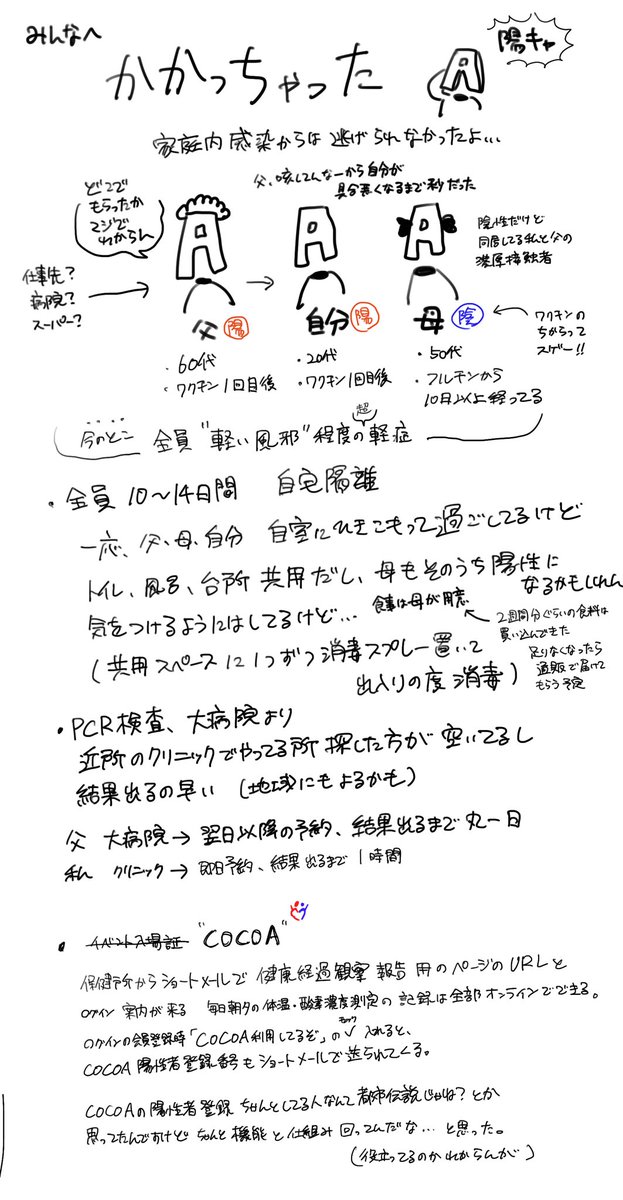 みんなへ
かかっちゃった
陽キャ
家庭内感染からは逃げられなかったよ…
父、咳してんなーから自分が
具合悪くなるまで秒だった
どこで
もらったか
マジで
わからん
仕事先?
病院?
スーパー?
父 陽
・60代
・ワクチン1回目後
自分 陽
・20代
・ワクチン1回目後
母 陰
・50代
・フルチンから
10日以上経ってる
陰性だけど
同居してる私と父の
濃厚接触者
ワクチンの
ちからって
スゲー!!
今のとこ 全員“軽い風邪”程度の超軽症
・全員 10〜14日間 自宅隔離
一応、父、母、自分 自室にひきこもって過ごしてるけど
トイレ、風呂、台所共用だし、母もそのうち陽性に
なるかもしれん
気をつけるようにはしてるけど…
食事は母が用意
2週間分ぐらいの食料は
買い込んできた
足りなくなったら
通販で届けて
もらう予定
(共用スペースに1つずつ消毒スプレー置いて
出入りの度消毒)
・PCR検査、大病院より
近所のクリニックでやってる所探した方が空いてるし
結果出るの早い (地域にもよるかも)
父 大病院→翌日以降の予約、結果出るまで丸一日
私 クリニック→即日予約、結果出るまで1時間
・イベント入場証 “COCOA”
保健所からショートメールで健康経過観察報告用のページのURLと
ログイン案内が来る 毎日朝夕の体温・酸素濃度測定の記録は全部オンラインでできる。
ログインの会員登録時「COCOA利用してるぞ」の✓チェック入れると、
COCOA陽性者登録番号もショートメールで送られてくる。
COCOAの陽性者登録ちゃんとしてる人なんて都市伝説じゃね?とか
思ってたんですけどちゃんと機能と仕組み回ってんだな…と思った。
(役立ってるのかわからんが)